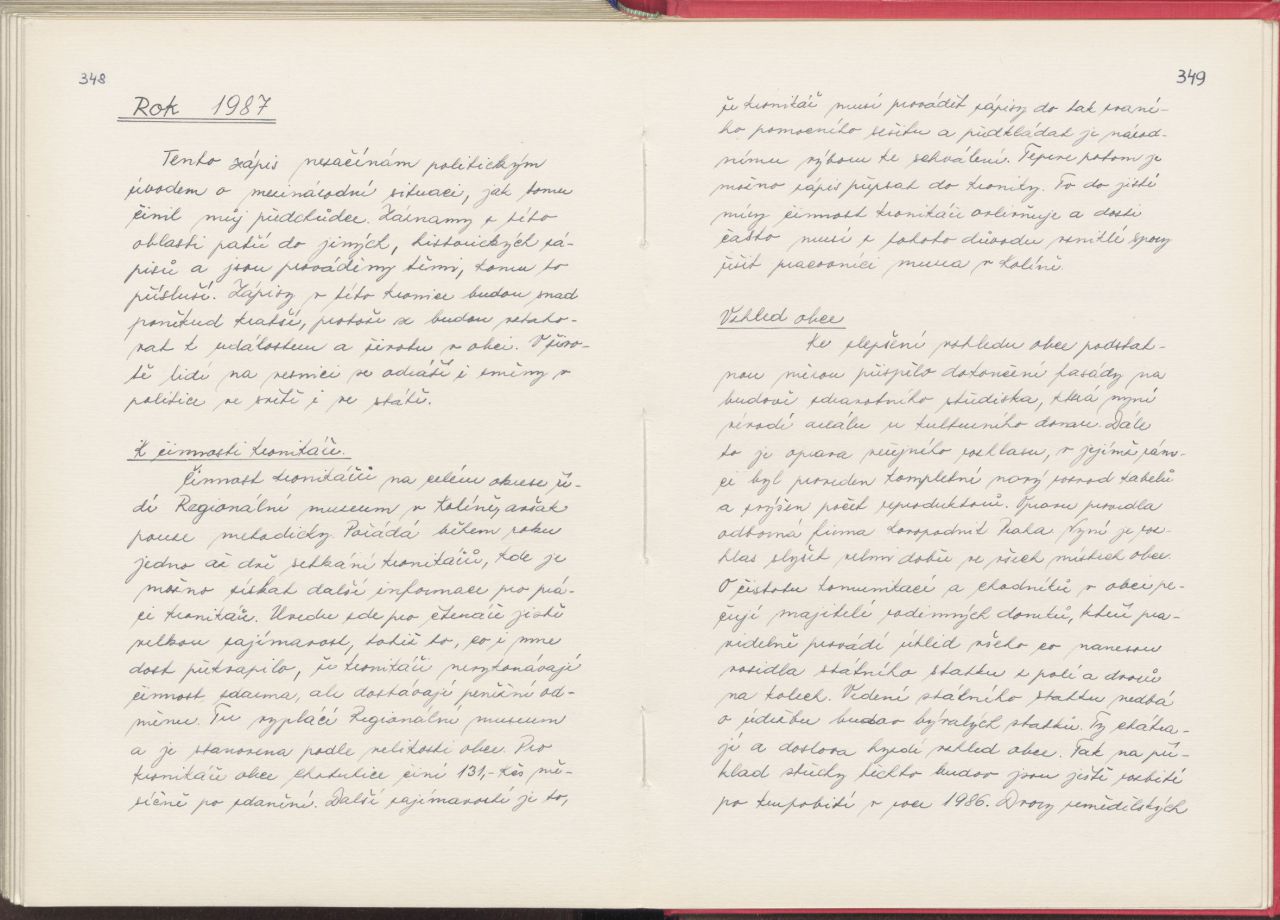 348
Rok 1987
Tento zápis nezačínám politickým
úvodem o mezinárodní situaci, jak tomu
činil můj předchůdce. Záznamy z této
oblasti patří do jiných, historických zá-
pisů a jsou prováděny těmi, komu to
přísluší. Zápisy v této kronice budou snad
poněkud kratší, protože se budou vztaho-
vat k událostem a životu v obci. V živo-
tě lidí na vesnici se odráží i změny v
politice ve světě i ve státě.
K činnosti kronikáře.
Činnost kronikářů na celém okrese ří-
dí Regionální museum v Kolíně, avšak
pouze metodicky. Pořádá během roku
jedno až dvě setkání kronikářů, kde je
možno získat další informace pro prá-
ci kronikáře. Uvedu zde pro čtenáře jistě
velkou zajímavost, totiž to, co i mne
dost překvapilo, že kronikáři nevykonávají
činnost zdarma, ale dostávají peněžní od-
měnu. Tu vyplácí Regionální museum
a je stanovena podle velikosti obce. Pro
kronikáře obce Chotutice činí 131,- Kčs mě-
síčně po zdanění. Další zajímavostí je to,
349
že kronikář musí provádět zápisy do tak zvané-
ho pomocného sešitu a předkládat je národ-
nímu výboru ke schválení. Teprve potom je
možno zápis přepsat do kroniky. To do jisté
míry činnost kronikáře ovlivňuje a dosti
často musí z tohoto důvodu vzniklé spory
řešit pracovníci musea v Kolíně.
Vzhled obce
Ke zlepšení vzhledu obce podstat-
nou měrou přispělo dokončení fasády na
budově zdravotního střediska, která nyní
vévodí areálu u kulturního domu. Dále
to je oprava veřejného rozhlasu, v jejímž rám-
ci byl proveden kompletní nový rozvod kabelů
a zvýšen počet reproduktorů. Opravu provedla
odborná firma Kovopodnik Praha. Nyní je roz-
hlas slyšet velmi dobře ve všech místech obce.
O čistotu komunikací a chodníků v obci pe-
čují majitelé rodinných domků, kteří pra-
videlně provádí úklid všeho co nanesou
vozidla státního statku z polí a dvorů
na kolech. Vedení státního statku nedbá
o údržbu budov bývalých statků. Ty chátra-
jí a doslova hyzdí vzhled obce. Tak na pří-
klad střechy těchto budov jsou ještě rozbité
po krupobití v roce 1986. Dvory zemědělských